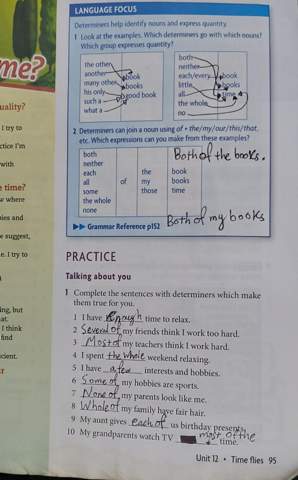 me?
LANGUAGE FOCUS
Determiners help identify nouns and express quantity.
1 Look at the examples. Which determiners go with which nouns?
Which group expresses quantity?
the other
another
many other
his only
such a
what a
book
books
good book
both
neither
each/every
little
all
the whole
no
book
books
time
2 Determiners can join a noun using of + the/my/our/this/that,
etc. Which expressions can you make from these examples?
both
neither
each
all
some
the whole
none
of
the
my
those
book
books
time
Both of the books.
Both of my books
▶▶ Grammar Reference p152
uality?
I try to
ctice I'm
with
e time?
w where
ies and
e suggest,
e. I try to
ing, but
at
I think
find
cient.
PRACTICE
Talking about you
1 Complete the sentences with determiners which make
them true for you.
1 I have enough time to relax.
2 Several of my friends think I work too hard.
3 Most of my teachers think I work hard.
4 I spent the whole weekend relaxing.
5 I have a few interests and hobbies.
6 Some of my hobbies are sports.
7 None of my parents look like me.
8 Whole of my family have fair hair.
9 My aunt gives each of us birthday presents.
10 My grandparents watch TV most of the time.
Unit 12 • Time flies 95